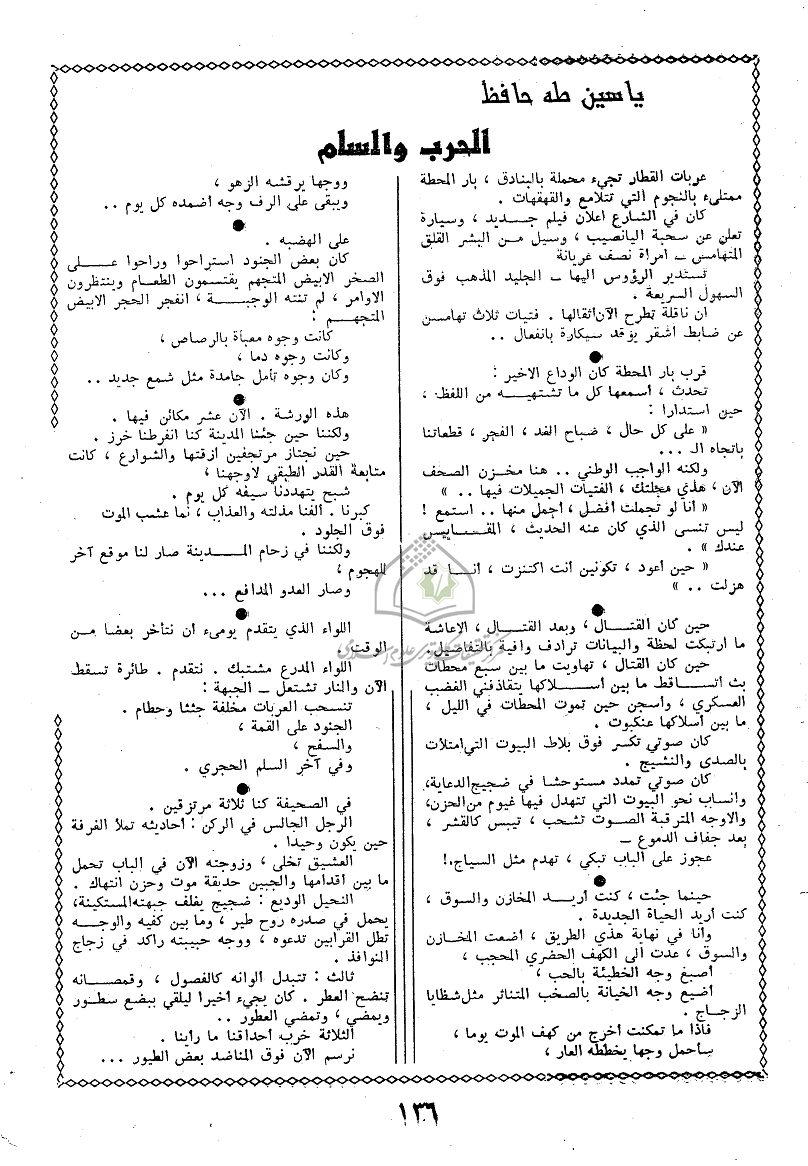 ياسين طه حافظ
الحرب والسلام
عربات القطار تجيء محملة بالبنادق ، بار المحطة
ممتلىء بالنجوم التي تتلامع والقهقهات .
كان في الشارع اعلان فيلم جــديد ، وسيارة
تعلن عن سحبة اليانصيب ، وسيل مــن البشر القلق
المتهامس ــ امرأة نصف عريانة
تستدير الرؤوس اليها ــ الجليد المذهب فوق
السهول السريعة .
ان ناقلة تطرح الآن أثقالها . فتيات ثلاث تهامسن
عن ضابط أشقر يوقد سيكارة بانفعال ..
●
قرب بار المحطة كان الوداع الاخير :
تحدث ، أسمعها كل ما تشتهيــه من اللفظ ،
حين استدارا :
« على كل حال ، صباح الغد ، الفجر ، قطعاتنا
باتجاه الـ ...
ولكنه الواجب الوطني .. هنا مخــزن الصحف
الآن ، هذي مجلتك ، الفتيات الجميلات فيها .. »
« أنا لو تجملت أفضل ، أجمل منها .. استمع !
ليس تنسى الذي كان عنه الحديث ، المقــاييس
عندك » .
« حين أعود ، تكونين أنت اكتنزت ، أنــا قد
هزلت .. »
●
حين كان القتــال ، وبعد القتــال ، الاعاشة
ما ارتبكت لحظة والبيانات ترادف وافية بالتفاصيل.
حين كان القتال ، تهاويت ما بين سبع محطات
بث أتســاقط ما بين أســلاكها يتقاذفني الغضب
العسكري ، وأسجن حين تموت المحطات في الليل ،
ما بين أسلاكها عنكبوت .
كان صوتي تكسر فوق بلاط البيوت التي امتلأت
بالصدى والنشيج .
كان صوتي تمدد مستوحشا في ضجيج الدعاية،
وانساب نحو البيوت التي تتهدل فيها غيوم من الحزن،
والاوجه المترقبة الصــوت تشحب ، تيبس كالقشر ،
بعد جفاف الدموع ــ
عجوز على الباب تبكي ، تهدم مثل السياج.!
●
حينما جئت ، كنت أريــد المخازن والسوق ،
كنت أريد الحياة الجديدة .
وأنا في نهاية هذي الطريق ، أضعت المخــازن
والسوق ، عدت الى الكهف الحضري المحجب ،
أصبغ وجه الخطيئة بالحب ،
أضيع وجه الخيانة بالصخب المتناثر مثل شظايا
الزجــاج .
فاذا ما تمكنت أخرج من كهف الموت يوما ،
سأحمل وجها يخططه العار ،
ووجها يرقشه الزهو ،
ويبقى على الرف وجه أضمده كل يوم ..
●
على الهضبه .
كان بعض الجنود استراحوا وراحوا عـــلى
الصخر الابيض المتجهم يقتسمون الطعــام وينتظرون
الاوامر ، لم تنته الوجبــة ، انفجر الحجر الابيض
المتجهــم :
كانت وجوه معبأة بالرصاص ،
وكانت وجوه دما ،
وكان وجوه تأمل جامدة مثل شمع جديد ..
●
هذه الورشة . الآن عشر مكائن فيها .
ولكننا حين جئنا المدينة كنا انفرطنا خرز .
حين نجتاز مرتجفين ازقتها والشوارع ، كانت
متابعة القدر الطبقي لاوجهنا ،
شبح يتهددنا سيفه كل يوم .
كبرنا . ألفنا مذلته والعذاب ، نما عشب الموت
فوق الجلود .
ولكننا في زحام المــدينة صار لنا موقع آخر
للهجوم ،
وصار العدو المدافع ...
●
اللواء الذي يتقدم يومىء ان نتأخر بعضا مــن
الوقت ،
اللواء المدرع مشتبك . نتقدم . طائرة تسقط
الآن والنار تشتعل ــ الجبهة :
تنسحب العربات مخلفة جثثا وحطام .
الجنود على القمة ،
والسفح ،
وفي آخر السلم الحجري .
●
في الصحيفة كنا ثلاثة مرتزقين .
الرجل الجالس في الركن : أحاديثه تملأ الغرفة
حين يكون وحيدا .
العشيق تخلى ، وزوجته الآن في الباب تحمل
ما بين أقدامها والجبين حديقة موت وحزن انتهاك .
النحيل الوديع : ضجيج يغلف جبهته المستكينة،
يحمل في صدره روح طير ، وما بين كفيه والوجــه
تظل القرابين تدعوه ، ووجه حبيبته راكد في زجاج
النوافذ .
ثالث : تتبدل ألوانه كالفصول ، وقمصــانه
تنضح العطر . كان يجيء أخيرا ليلقي ببضع سطور
ويمضي ، وتمضي العطور ..
الثلاثة خرب أحداقنا ما رأينا .
نرسم الآن فوق المناضد بعض الطيور ...
١٣٦